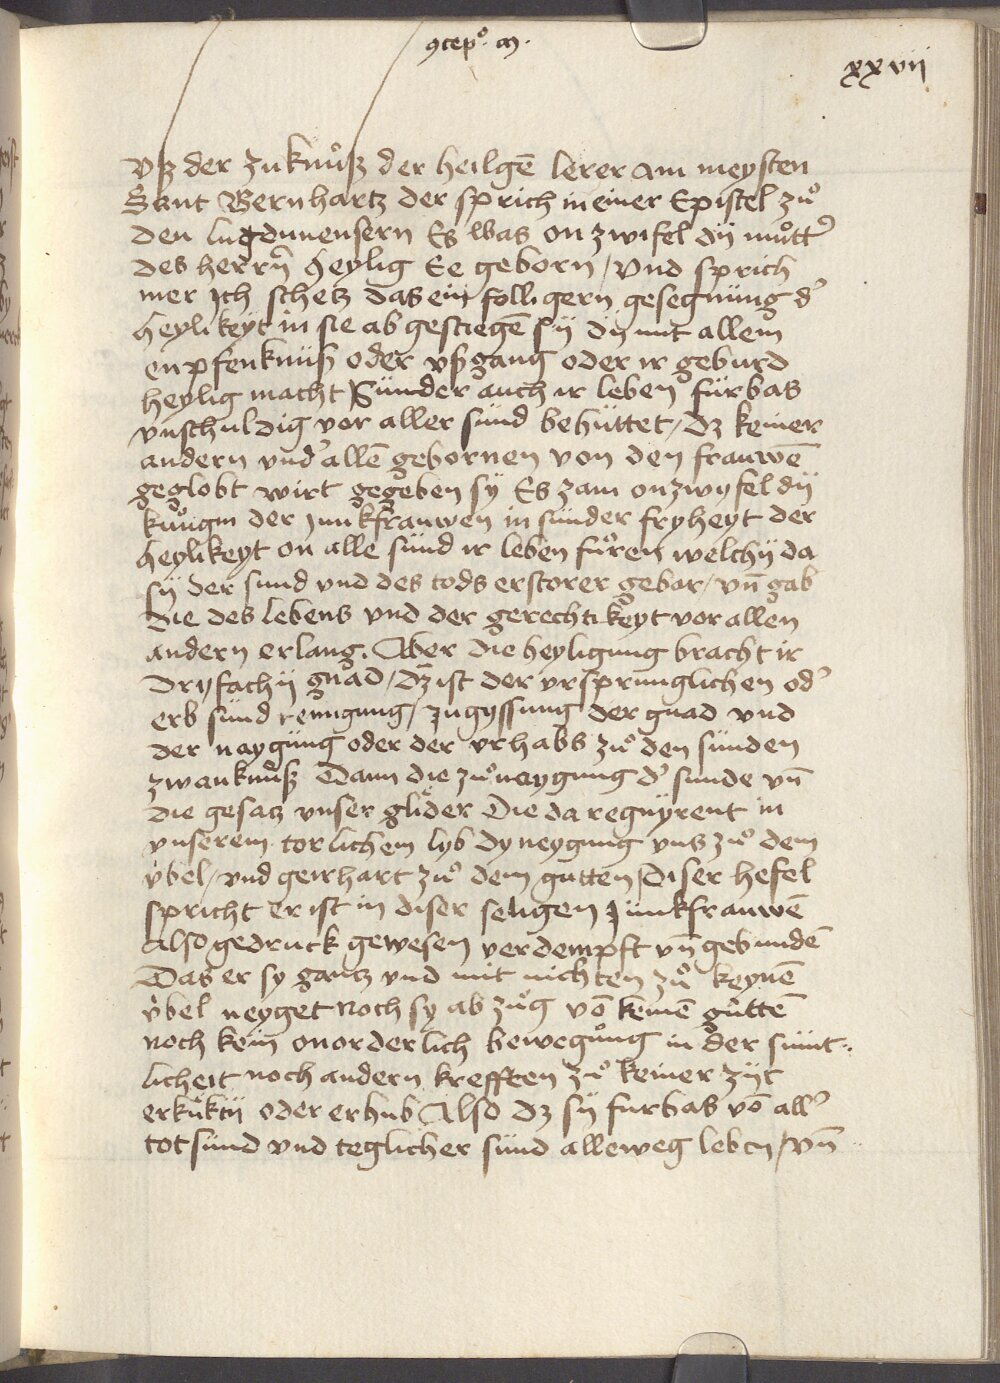 ꝯcepº. m.
xxvij
vß der zuknuͦß der heilgē lerer am meysten
Sant Bernhartz der sprich in einer Epistel zuͦ
den lugdunensern Es was on zwifel dÿ muͦtt̛
des herrn̄ heylig Ee geborn / vnd sprich
mer Jch schetz das ein folligern gesegnüng d̛
heylikeyt in sie ab gestiegē sÿ dÿ mit allem
enpfenknüß oder vßgang oder ir geburd
heylig macht Sünder auch ir leben fürbas
vnschuldig vor aller sünd behüttet / dz keiner
andern vnd̛ allē gebornen von den frauwē
geglobt wirt gegeben sÿ Es zam onzwyfel dÿ
kuͦngin der junkfrauwen in sünder fryheyt der
heylikeyt on alle sünd ir leben fuͦren welchÿ da
sÿ der sünd vnd des tods erstorer gebar / vn̄ gab
die des lebens vnd der gerechtikeyt vor allen
andern erlang. Aber die heyligung bracht ir
dryfachÿ gnad / dz ist der vrsprunglichen od̛
erb sünd reinigung / zugyssung der gnad vnd
der naygüng oder der vrhabs zuͦ den sünden
zwanknuͦß Dann die zuͦneygung d̛ sunde vn̄
die gesatz vnser glider Die da regnÿrent in
vnserem torlichem lyb dy neygung vns zuͦ dem
vͤbel / vnd geirhart zuͦ dem gutten / Diser hefel
spricht er ist in diser seligen Junkfrauwē
also gedruck gewesen verdempft vn̄ gebundē
Das er sy gantz vnd mit nichten zuͦ keynē
vͤbel neyget noch sy ab zuͦg vō keinē guͤttē
noch kein onorderlich bewegung in der sünt⸗
licheit noch andern krefften zuͦ keiner zÿt
erkuͤktÿ oder erhub Also dz sÿ furbas vō all̛
totsünd vnd teglicher sünd alleweg leben / vn̄